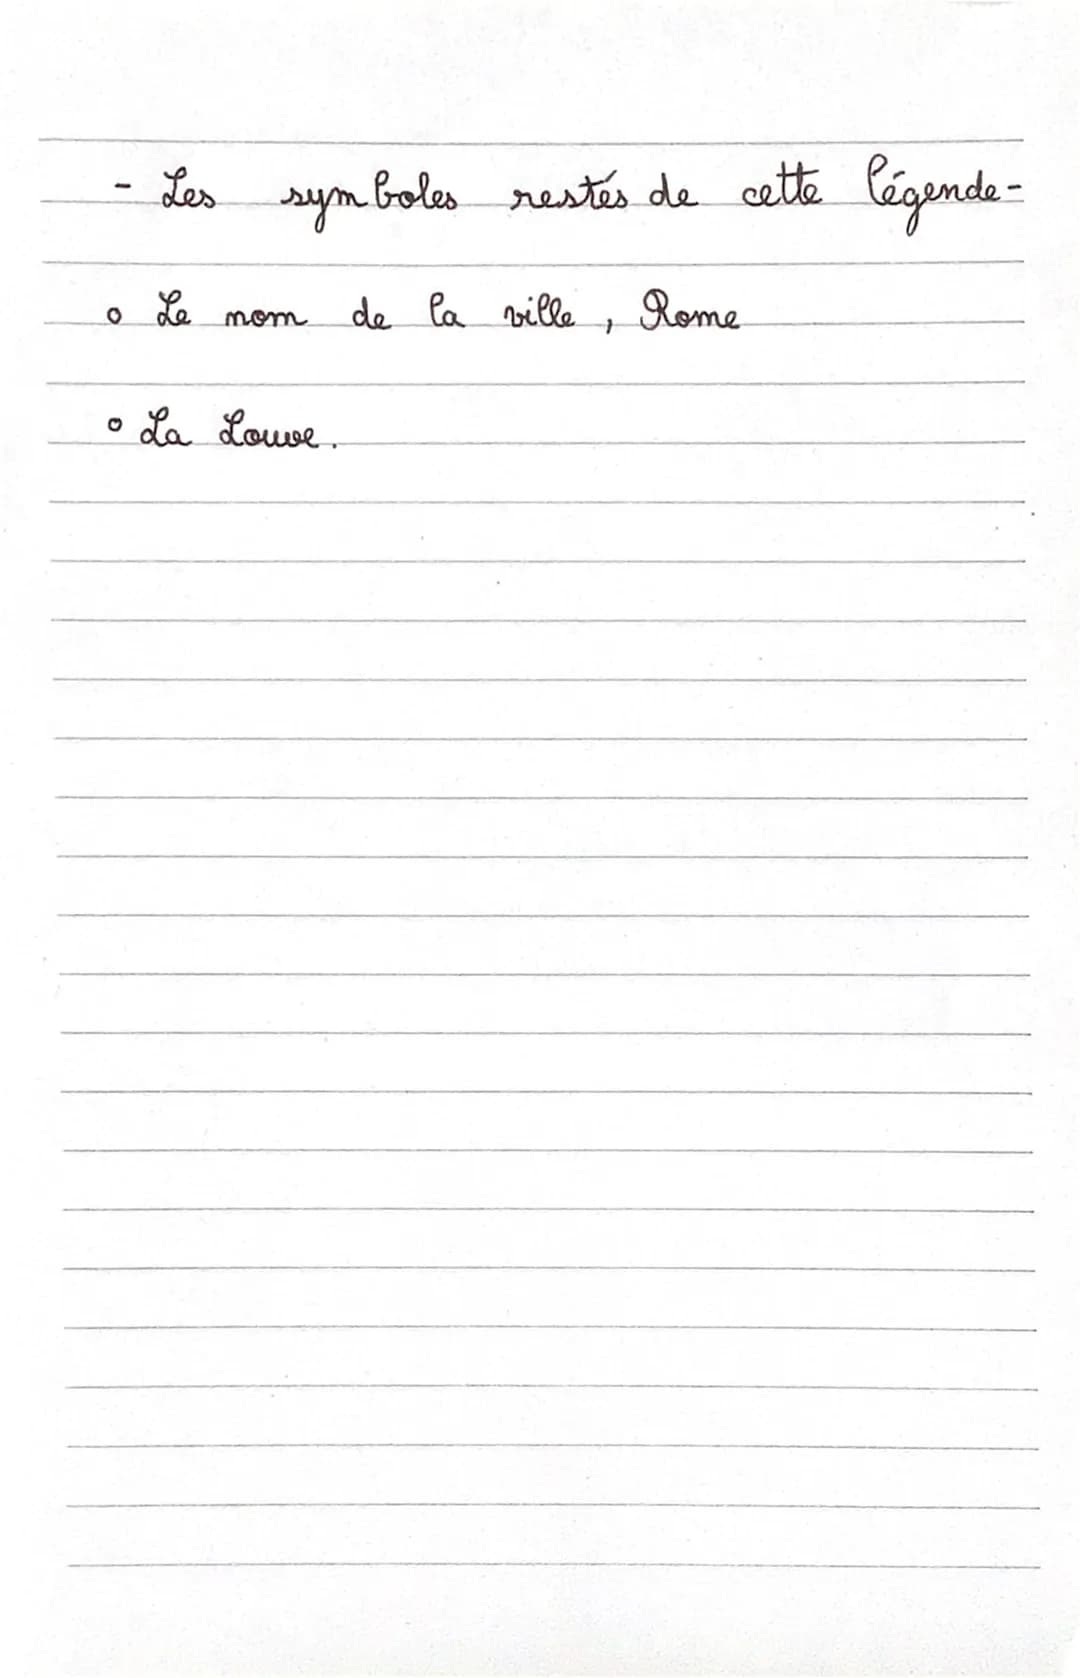 - Les symboles restés de cette légende -
o Le nom de la ville, Rome
o La Louve.